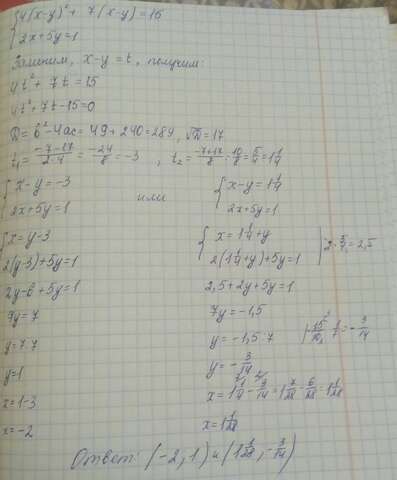 {4(x-y)²+7(x-y)=15
{2x+5y=1
Заменим, x-y=t, получим:
4t²+7t=15
4t²+7t-15=0
D=b²-4ac=49+240=289, √D=17
t₁=(-7-17)/(2·4)=-24/8=-3, t₂=(-7+17)/8=10/8=5/4=1 1/4
{x-y=-3
{2x+5y=1
или
{x-y=1 1/4
{2x+5y=1
{x=y-3
2(y-3)+5y=1
2y-6+5y=1
7y=7
y=7:7
y=1
x=1-3
x=-2
{x=1 1/4+y
{2(1 1/4+y)+5y=1
|2·5/4=2,5
2,5+2y+5y=1
7y=-1,5
y=-1,5:7
y=-3/14
x=1 1/4-3/14=1 7/28-6/28=1 1/28
x=1 1/28
Ответ: (-2,1) и (1 1/28,-3/14)